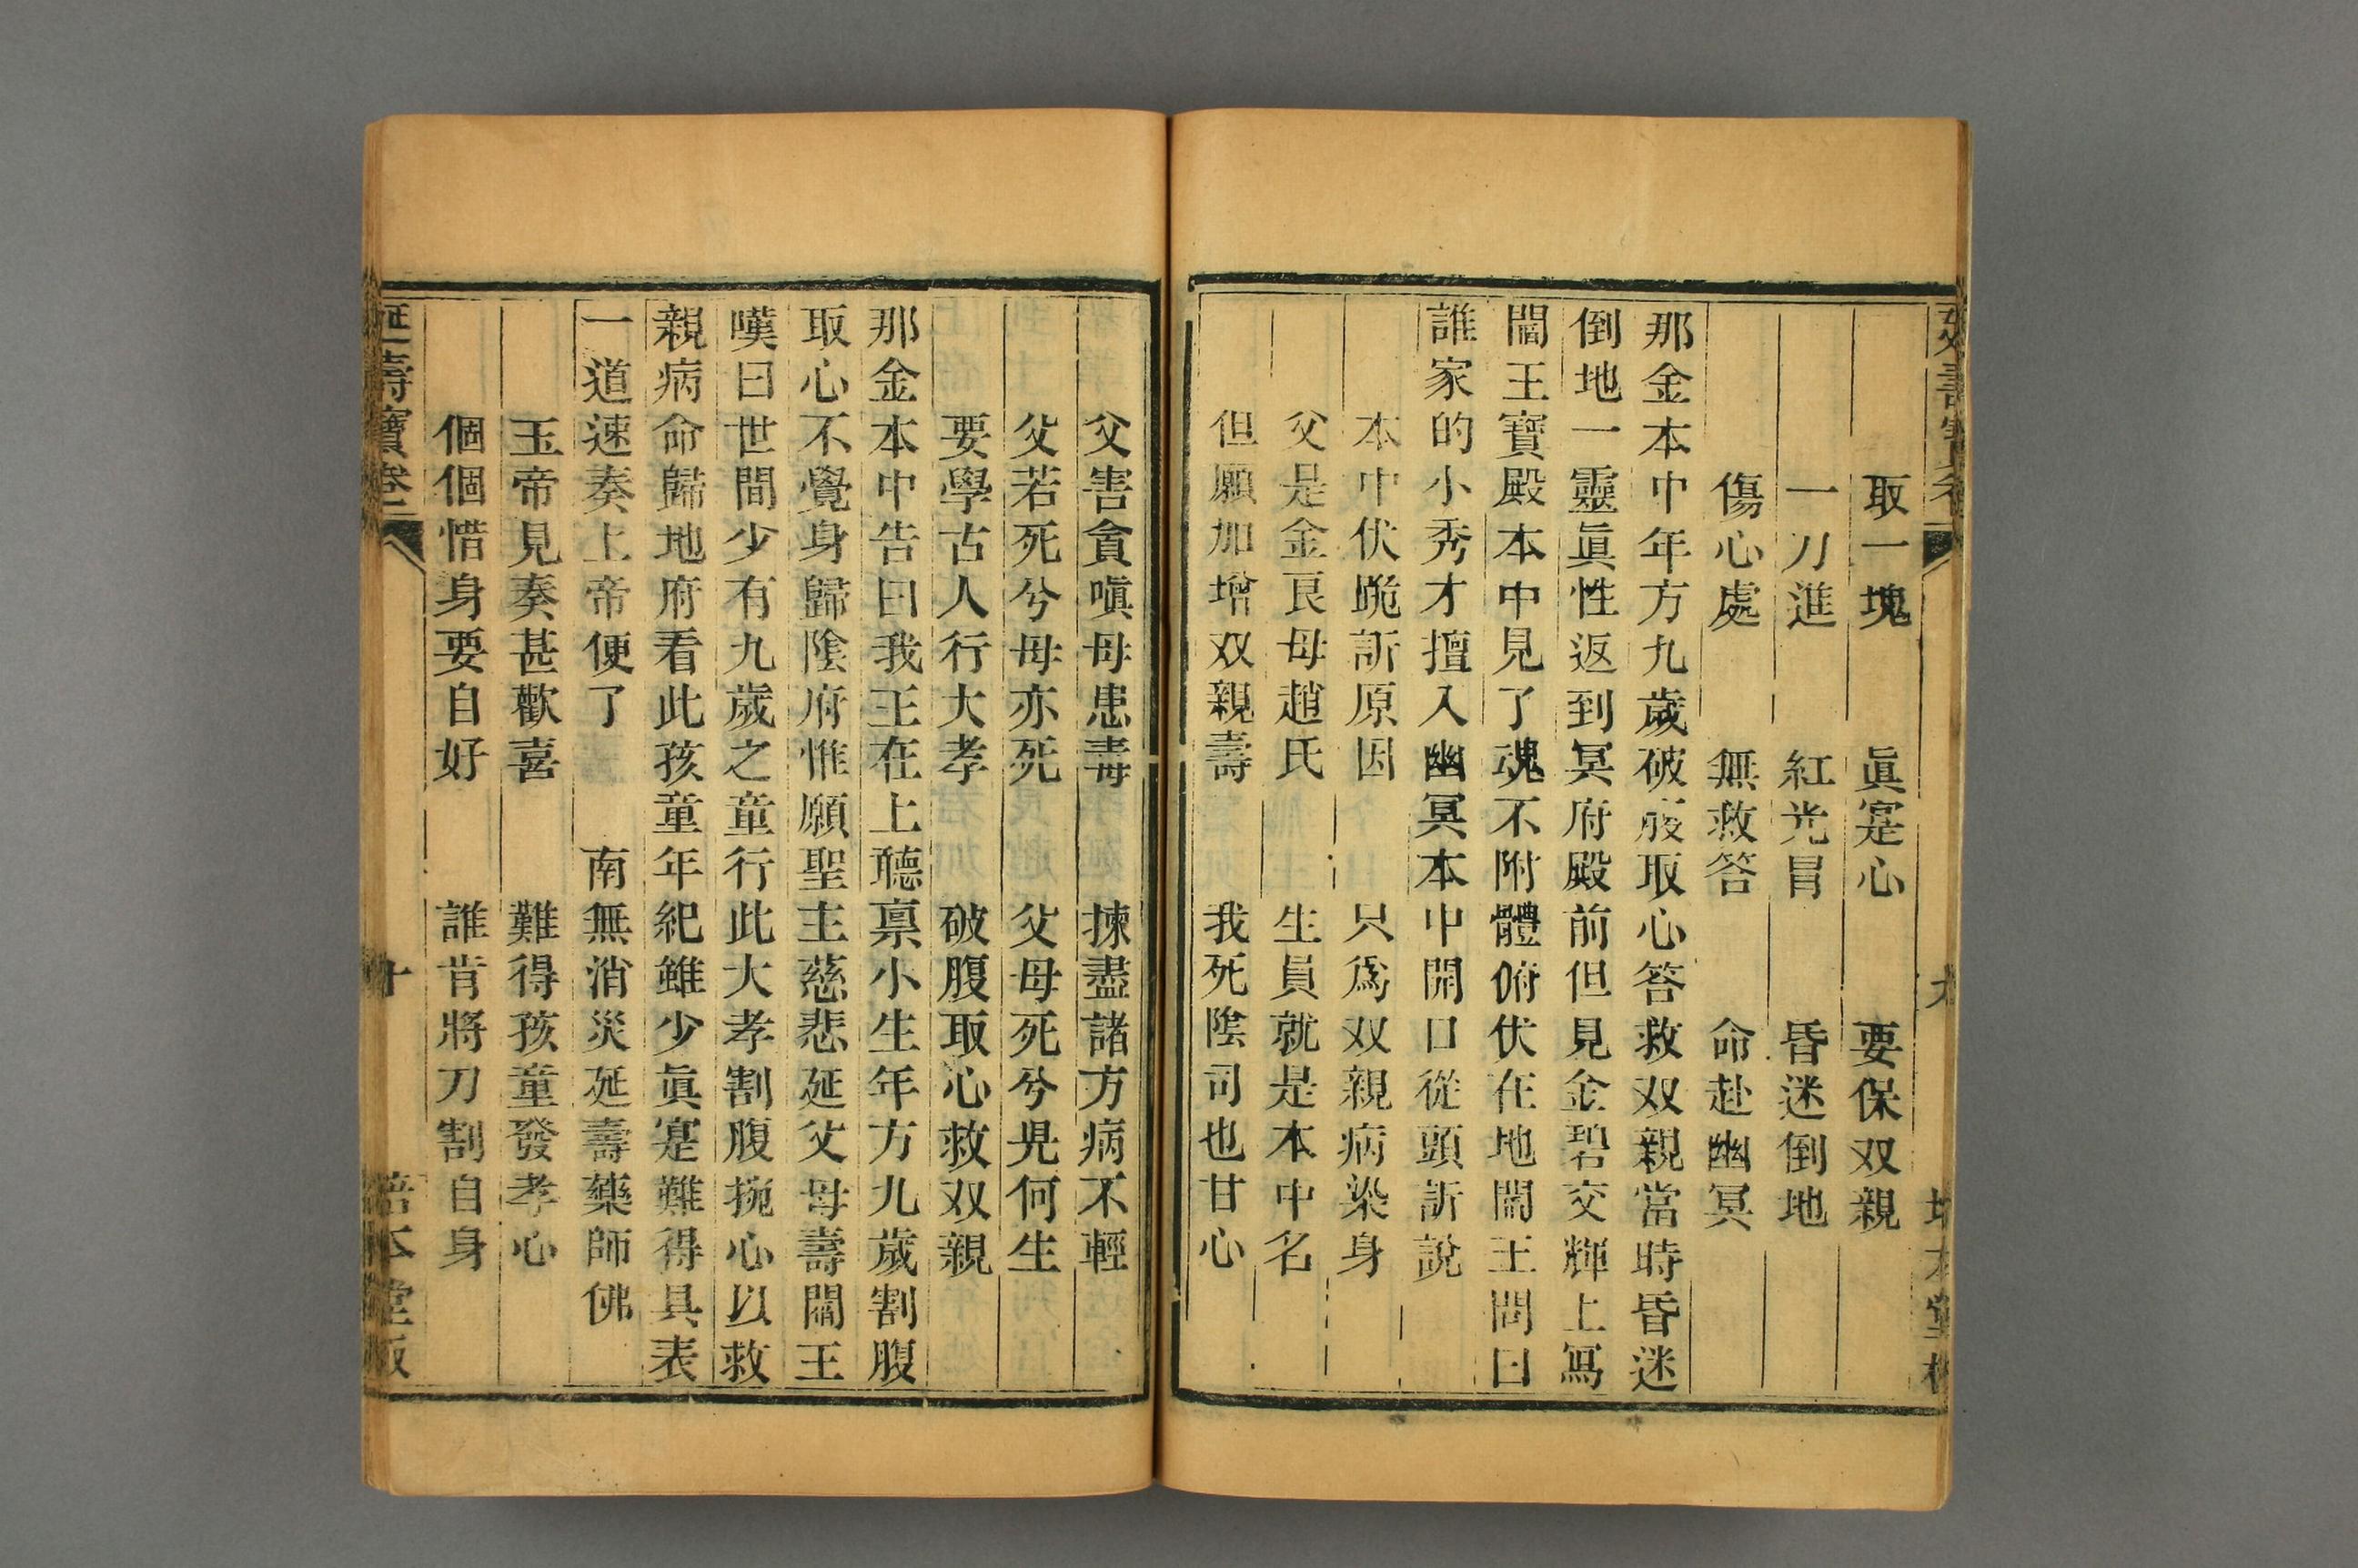 取一塊　眞寔心　要保双親
一刀進　紅光冒　昏迷倒地
傷心處　無救答　命赴幽冥
那金本中年方九歲破腹取心答救双親當時昏迷
倒地一靈眞性返到冥府殿前但見金碧交輝上寫
閻王寶殿本中見了魂不附體俯伏在地閻王問曰
誰家的小秀才擅入幽冥本中開口從頭訴說
本中伏跪訴原因　只爲双親病染身
父是金艮母趙氏　生員就是本中名
但願加增双親壽　我死陰司也甘心
父害貪嗔母患毒　揀盡諸方病不輕
父若死兮母亦死　父母死兮見何生
要學古人行大孝　破腹取心救双親
那金本中告曰我王在上聽禀小生年方九歲割腹
取心不覺身歸陰府惟願聖主慈悲延父母壽閻王
嘆曰世間少有九歲之童行此大孝割腹挖心以救
親病命歸地府看此孩童年紀雖少眞寔難得具表
一道速奏上帝便了　南無消災延壽藥師佛
玉帝見奏甚歡喜　難得孩童發孝心
個個惜身要自好　誰肯將刀割自身
延壽寶卷　十　培本堂板